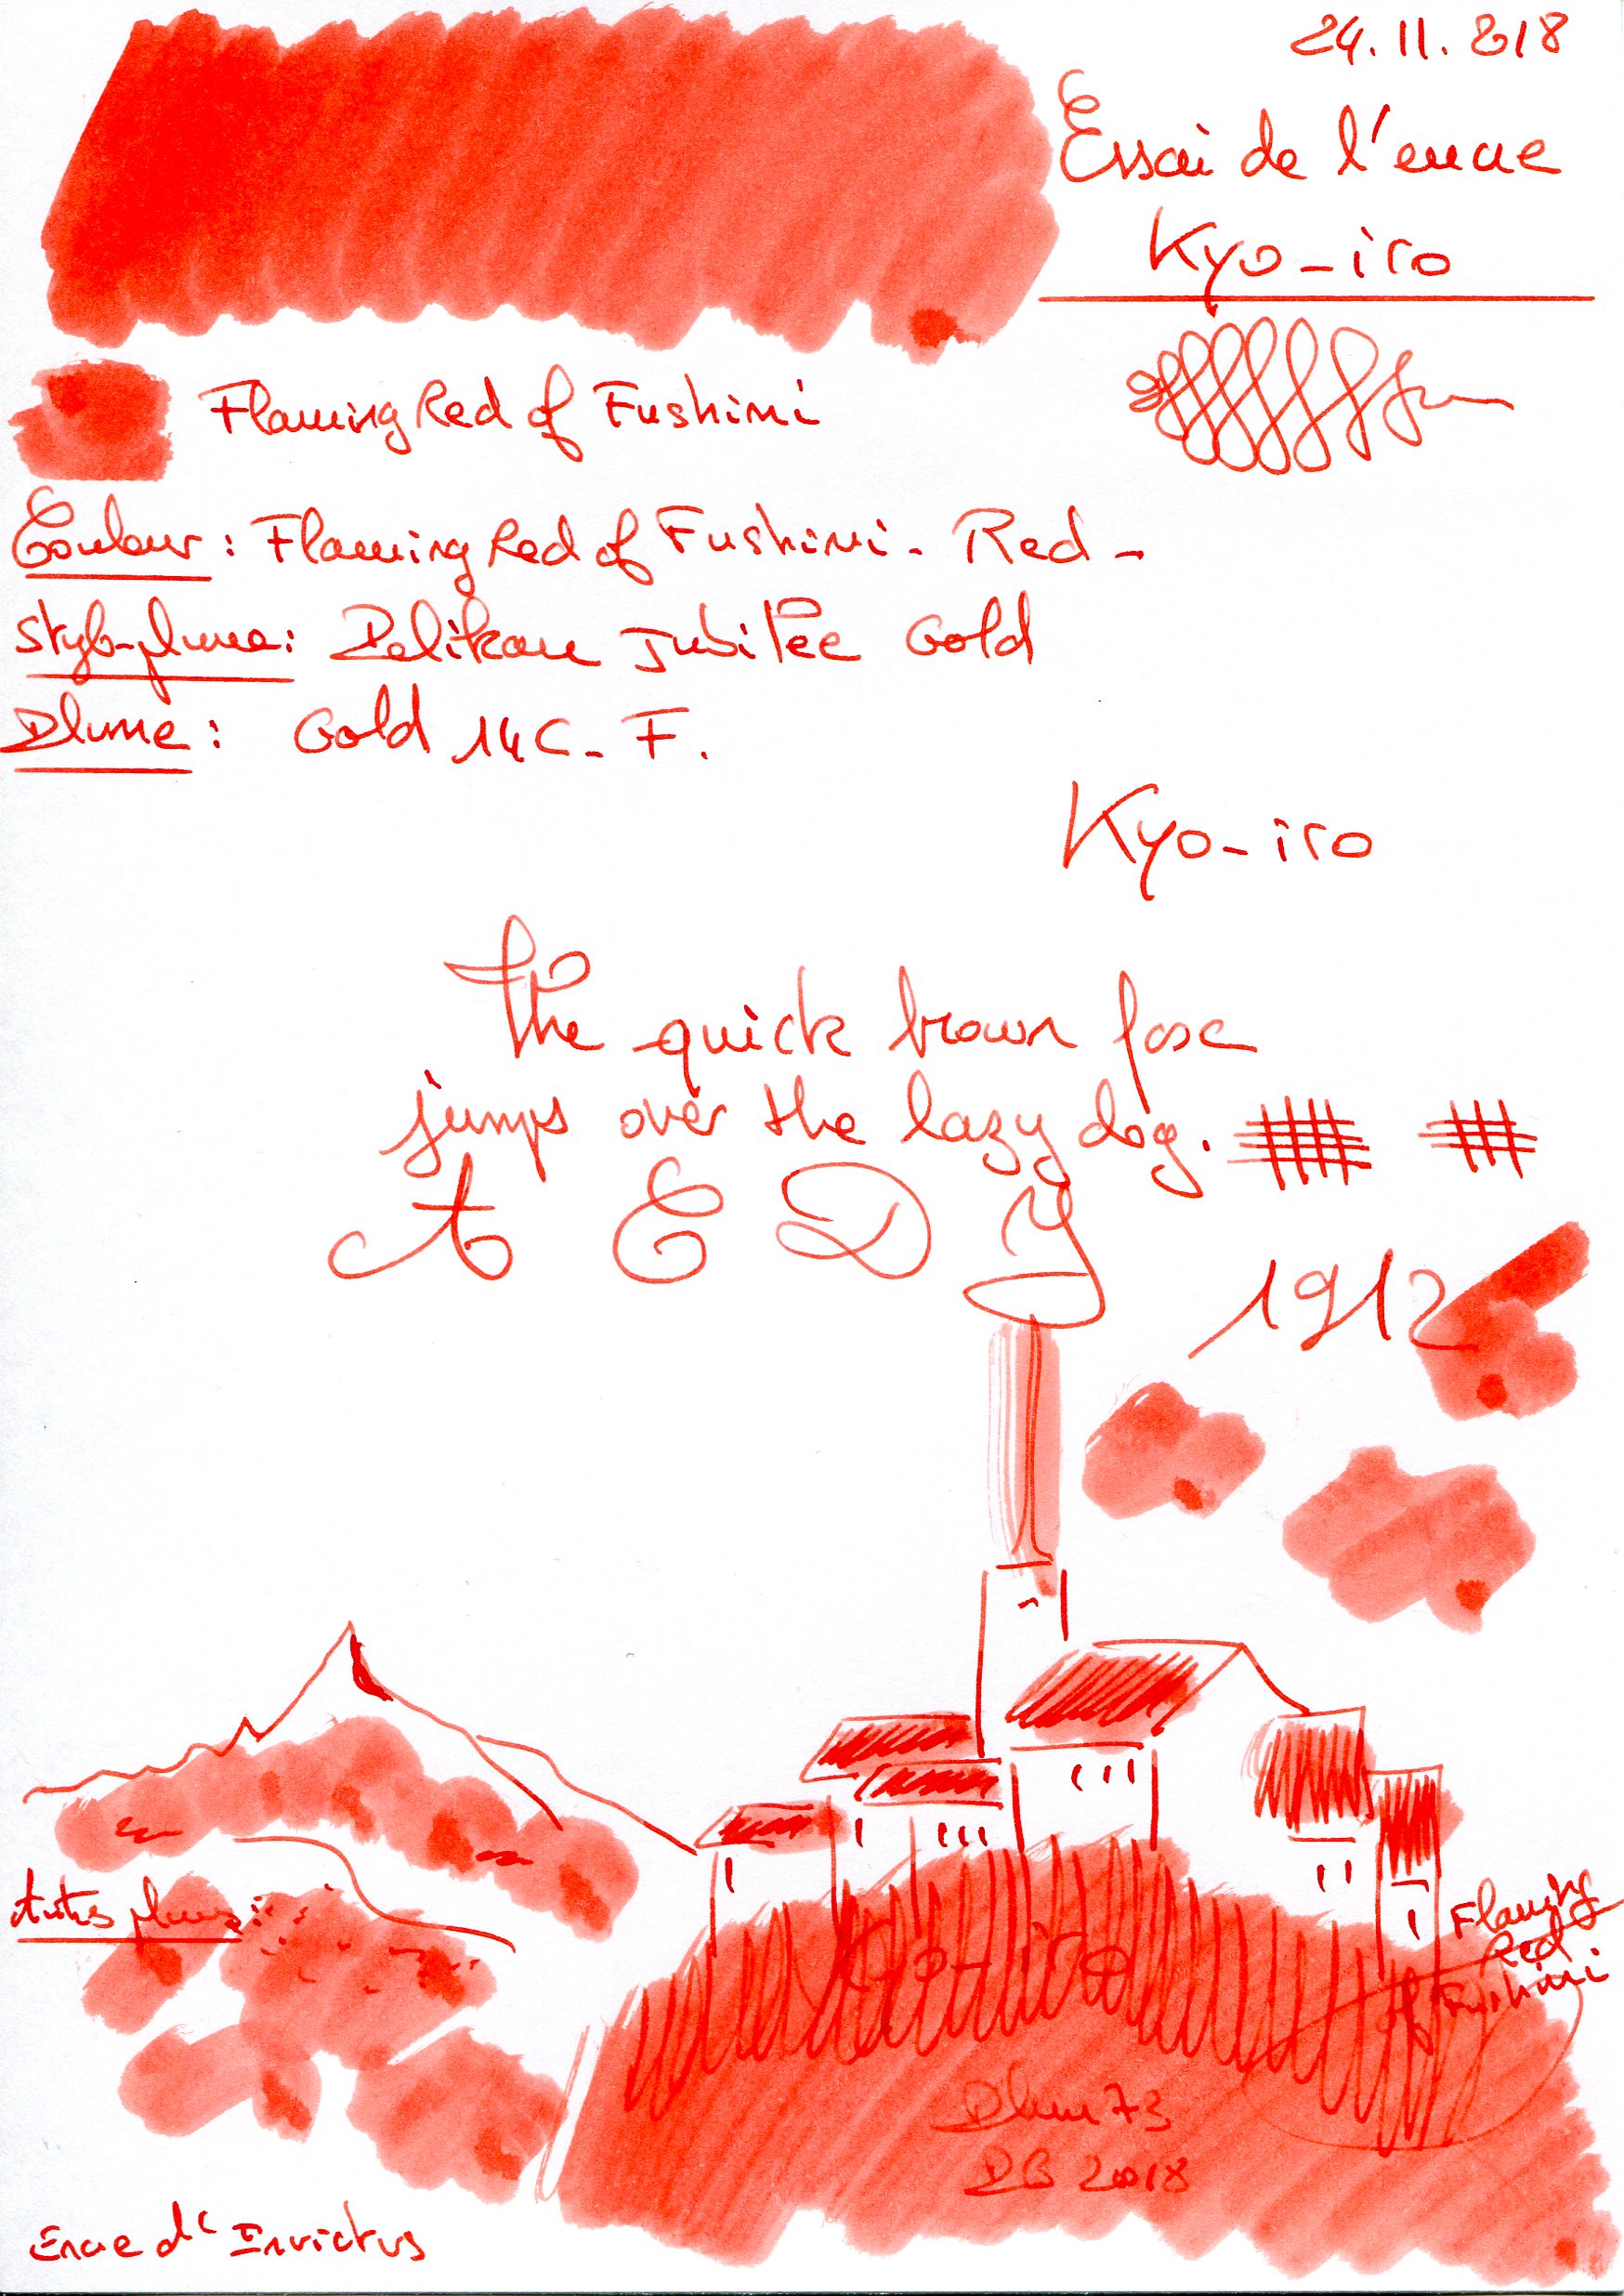 24.11.2018
Essai de l'encre
Kyo-iro
Flaming Red of Fushimi
Couleur : Flaming Red of Fushimi - Red -
Stylo-plume : Pelikan Jubilee Gold
Plume : Gold 14C - F.
Kyo-iro
The quick brown fox
jumps over the lazy dog.
A E D Y
1912
Autres plumes :
Flaming
Red
of Fushimi
Kyo-iro
Plum 73
PB 2018
Encre de Invictus